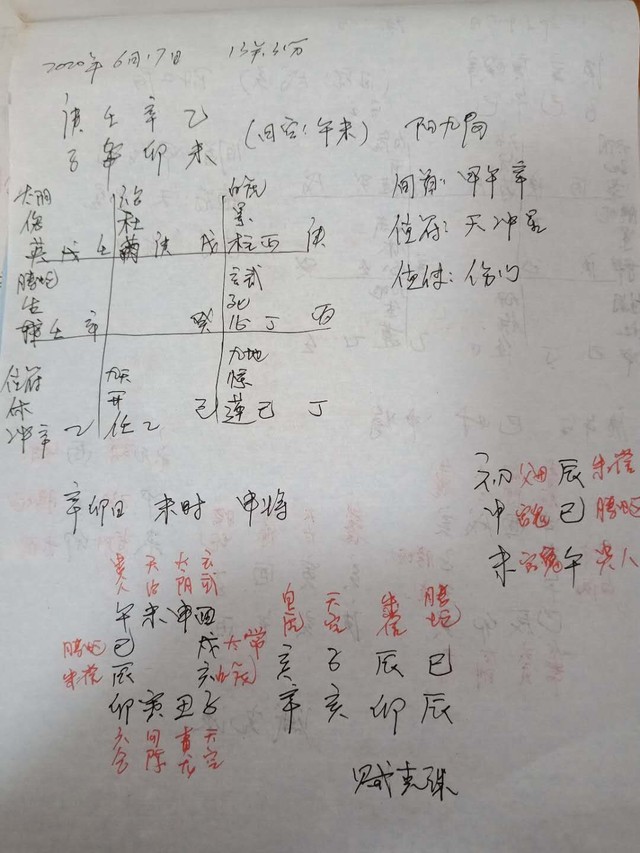 2020年6月17日 13点31分
庚 壬 辛 乙
子 午 卯 未 (旬空:午未) 阳九局
旬首:甲午辛
值符:天冲星
值使:伤门
太阴 六合 白虎
伤 杜 景
英 戊 壬 庚 戊 柱 丙 庚
腾蛇 玄武
生 死
壬 辛 癸 心 丁 丙
值符 九天 九地
休 开 惊
冲 辛 乙 任 乙 己 蓬 己 丁
初 父母 辰 朱雀
中 官鬼 巳 腾蛇
末 官鬼 午 贵人
辛卯日 未时 申将
贵人 天后 太阴 玄武
午 未 申 酉
腾蛇 巳 戌 太常
朱雀 辰 亥 白虎
卯 寅 丑 子
六合 勾陈 青龙 天空
白虎 天空 朱雀 腾蛇
亥 子 辰 巳
辛 亥 卯 辰